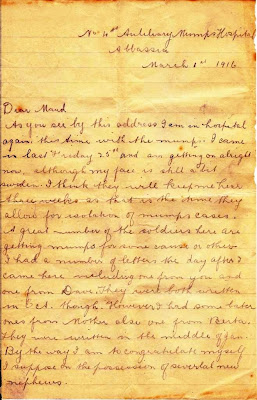 No 4th Auxiliary Mumps Hospital
Abbassia
March 1st 1916
Dear Maud
As you see by this address I am in hospital
again this time with the mumps. I came
in last Friday 25th and am getting on alright
now, although my face is still a bit
swollen. I think they will keep me here
three weeks as that is the time they
allow for isolation of mumps cases.
A great number of the soldiers here are
getting mumps for some cause or other
I had a number of letters the day after I
came here including one from you and
one from Dave. They were both written
in Oct. though. However I had some later
ones from Mother also one from Berta.
They were written in the middle of Jan.
By the way I am to congratulate myself
I suppose on the possession of several new
nephews.